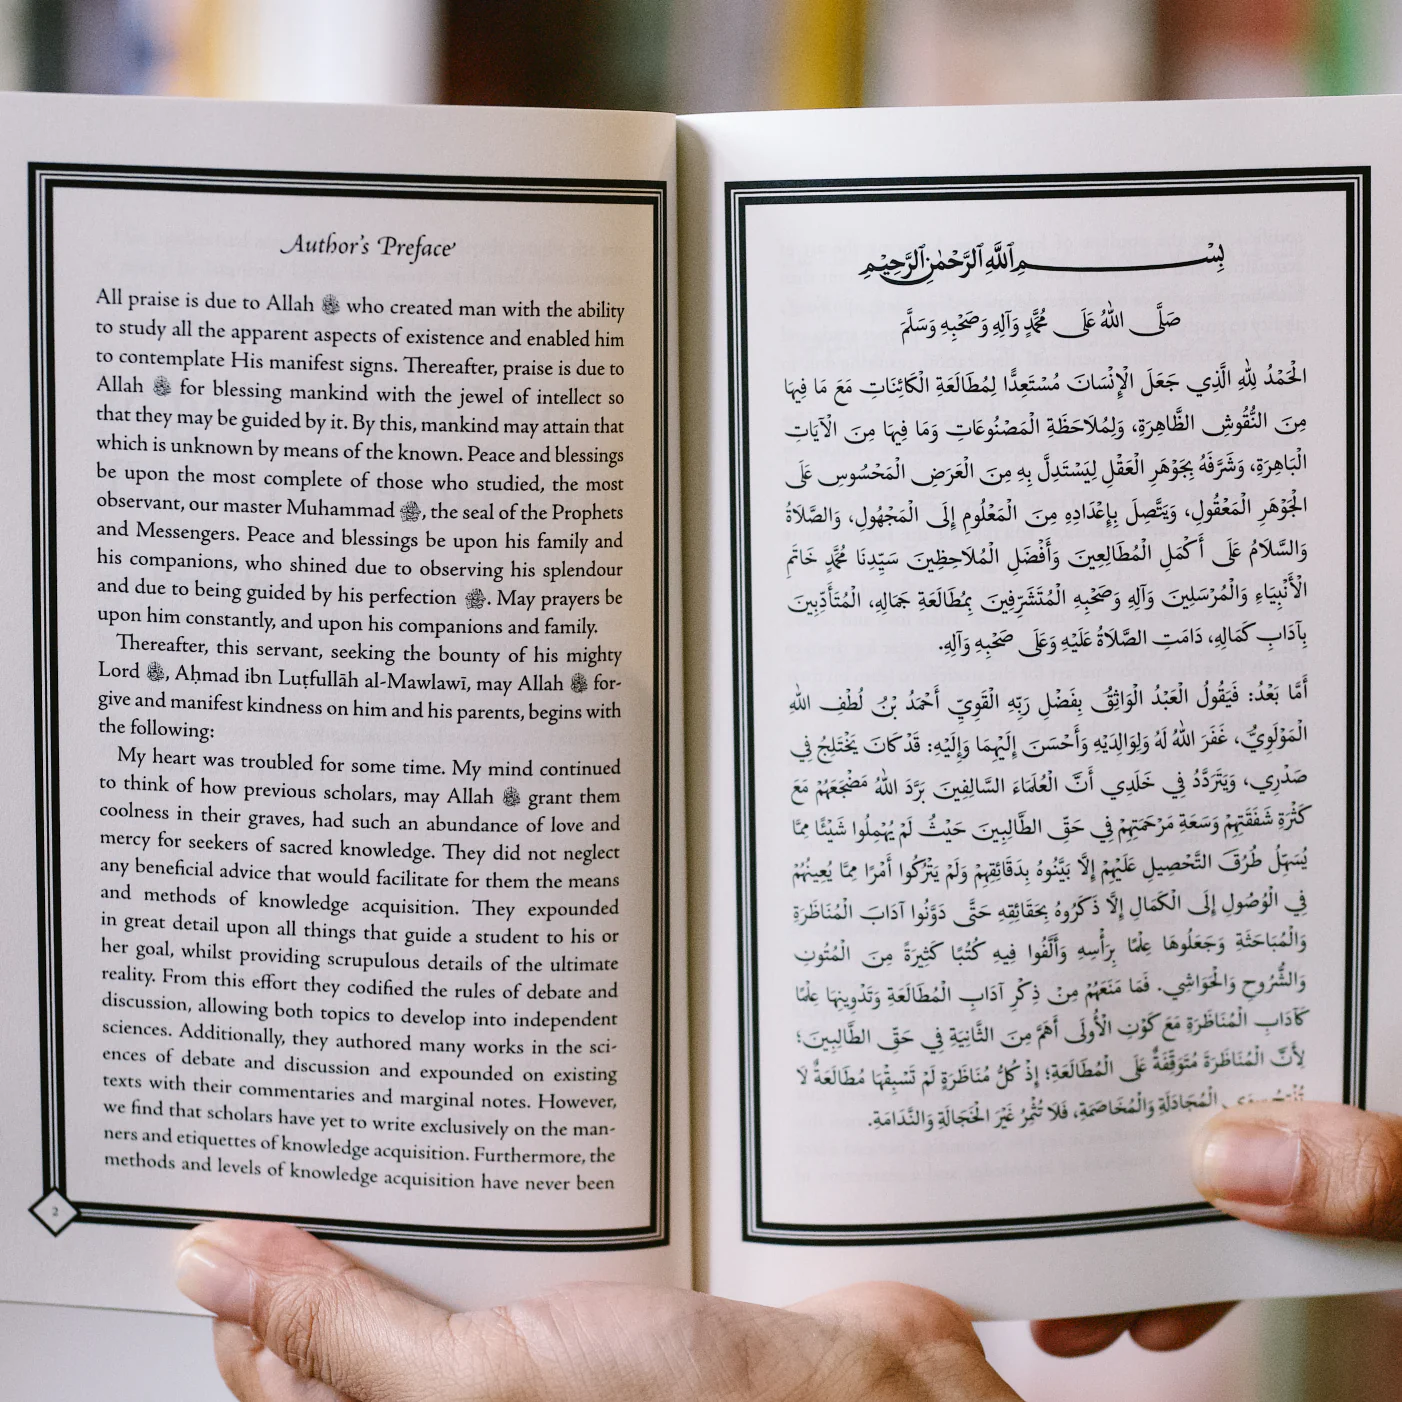 Author's Preface
All praise is due to Allah ﷻ who created man with the ability
to study all the apparent aspects of existence and enabled him
to contemplate His manifest signs. Thereafter, praise is due to
Allah ﷻ for blessing mankind with the jewel of intellect so
that they may be guided by it. By this, mankind may attain that
which is unknown by means of the known. Peace and blessings
be upon the most complete of those who studied, the most
observant, our master Muhammad ﷺ, the seal of the Prophets
and Messengers. Peace and blessings be upon his family and
his companions, who shined due to observing his splendour
and due to being guided by his perfection ﷺ. May prayers be
upon him constantly, and upon his companions and family.
Thereafter, this servant, seeking the bounty of his mighty
Lord ﷻ, Aḥmad ibn Luṭfullāh al-Mawlawī, may Allah ﷻ for-
give and manifest kindness on him and his parents, begins with
the following:
My heart was troubled for some time. My mind continued
to think of how previous scholars, may Allah ﷻ grant them
coolness in their graves, had such an abundance of love and
mercy for seekers of sacred knowledge. They did not neglect
any beneficial advice that would facilitate for them the means
and methods of knowledge acquisition. They expounded
in great detail upon all things that guide a student to his or
her goal, whilst providing scrupulous details of the ultimate
reality. From this effort they codified the rules of debate and
discussion, allowing both topics to develop into independent
sciences. Additionally, they authored many works in the sci-
ences of debate and discussion and expounded on existing
texts with their commentaries and marginal notes. However,
we find that scholars have yet to write exclusively on the man-
ners and etiquettes of knowledge acquisition. Furthermore, the
methods and levels of knowledge acquisition have never been
2
بِسْمِ اللَّهِ الرَّحْمَٰنِ الرَّحِيْمِ
صَلَّى اللهُ عَلَى مُحَمَّدٍ وَآلِهِ وَصَحْبِهِ وَسَلَّمَ
الْحَمْدُ لِلّٰهِ الَّذِي جَعَلَ الْإِنْسَانَ مُسْتَعِدًّا لِمُطَالَعَةِ الْكَائِنَاتِ مَعَ مَا فِيهَا
مِنَ النُّقُوشِ الظَّاهِرَةِ، وَلِمُلَاحَظَةِ الْمَصْنُوعَاتِ وَمَا فِيهَا مِنَ الْآيَاتِ
الْبَاهِرَةِ، وَشَرَّفَهُ بِجَوْهَرِ الْعَقْلِ لِيَسْتَدِلَّ بِهِ مِنَ الْعَرَضِ الْمَحْسُوسِ عَلَى
الْجَوْهَرِ الْمَعْقُولِ، وَيَتَّصِلَ بِإِعْدَادِهِ مِنَ الْمَعْلُومِ إِلَى الْمَجْهُولِ، وَالصَّلَاةُ
وَالسَّلَامُ عَلَى أَكْمَلِ الْمُطَالِعِينَ وَأَفْضَلِ الْمُلَاحِظِينَ سَيِّدِنَا مُحَمَّدٍ خَاتَمِ
الْأَنْبِيَاءِ وَالْمُرْسَلِينَ وَآلِهِ وَصَحْبِهِ الْمُتَشَرِّفِينَ بِمُطَالَعَةِ جَمَالِهِ، الْمُتَأَدِّبِينَ
بِآدَابِ كَمَالِهِ، دَامَتِ الصَّلَاةُ عَلَيْهِ وَعَلَى صَحْبِهِ وَآلِهِ.
أَمَّا بَعْدُ: فَيَقُولُ الْعَبْدُ الْوَاثِقُ بِفَضْلِ رَبِّهِ الْقَوِيِّ أَحْمَدُ بْنُ لُطْفِ اللهِ
الْمَوْلَوِيُّ، غَفَرَ اللهُ لَهُ وَلِوَالِدَيْهِ وَأَحْسَنَ إِلَيْهِمَا وَإِلَيْهِ: قَدْ كَانَ يَخْتَلِجُ فِي
صَدْرِي، وَيَتَرَدَّدُ فِي خَلَدِي أَنَّ الْعُلَمَاءَ السَّالِفِينَ بَرَّدَ اللهُ مَضْجَعَهُمْ مَعَ
كَثْرَةِ شَفَقَتِهِمْ وَسَعَةِ مَرْحَمَتِهِمْ فِي حَقِّ الطَّالِبِينَ حَيْثُ لَمْ يُهْمِلُوا شَيْئًا مِمَّا
يُسَهِّلُ طُرُقَ التَّحْصِيلِ عَلَيْهِمْ إِلَّا بَيَّنُوهُ بِدَقَائِقِهِمْ وَلَمْ يَتْرُكُوا أَمْرًا مِمَّا يُعِينُهُمْ
فِي الْوُصُولِ إِلَى الْكَمَالِ إِلَّا ذَكَرُوهُ بِحَقَائِقِهِ حَتَّى دَوَّنُوا آدَابَ الْمُنَاظَرَةِ
وَالْمُبَاحَثَةِ وَجَعَلُوهَا عِلْمًا بِرَأْسِهِ وَأَلَّفُوا فِيهِ كُتُبًا كَثِيرَةً مِنَ الْمُتُونِ
وَالشُّرُوحِ وَالْحَوَاشِي. فَمَا مَنَعَهُمْ مِنْ ذِكْرِ آدَابِ الْمُطَالَعَةِ وَتَدْوِينِهَا عِلْمًا
كَآدَابِ الْمُنَاظَرَةِ مَعَ كَوْنِ الْأُولَى أَهَمَّ مِنَ الثَّانِيَةِ فِي حَقِّ الطَّالِبِينَ؛
لِأَنَّ الْمُنَاظَرَةَ مُتَوَقِّفَةٌ عَلَى الْمُطَالَعَةِ؛ إِذْ كُلُّ مُنَاظَرَةٍ لَمْ تَسْبِقْهَا مُطَالَعَةٌ لَا
الْمُجَادَلَةِ وَالْمُخَاصَمَةِ، فَلَا تُثْمِرُ غَيْرَ الْخَجَالَةِ وَالنَّدَامَةِ.